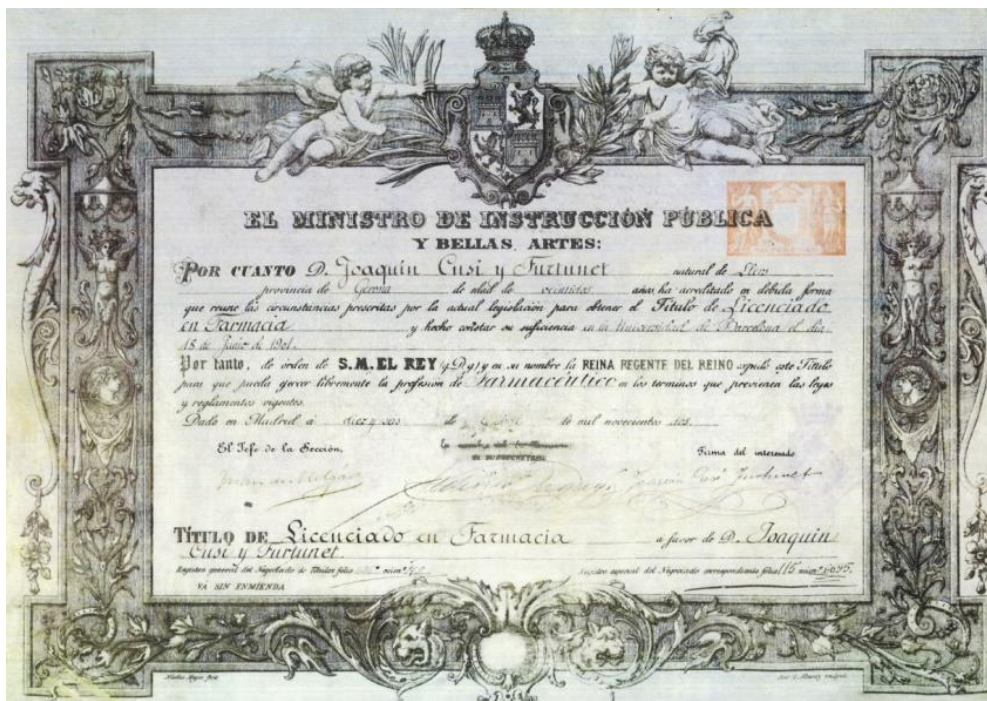 EL MINISTRO DE INSTRUCCIÓN PÚBLICA
Y BELLAS ARTES:
POR CUANTO D. Joaquín Cusí y Furtunet natural de Llers
provincia de Gerona de edad de veintidos años, ha acreditado en debida forma
que reune las circunstancias prescritas por la actual legislación para obtener el Título de Licenciado
en Farmacia y hecho constar su suficiencia en la Universidad de Barcelona el dia
18 de Junio de 1901.
Por tanto, de orden de S.M. EL REY (q.D.g) y en su nombre la REINA REGENTE DEL REINO expido este Título
para que pueda ejercer libremente la profesión de Farmacéutico en los terminos que previenen las leyes
y reglamentos vigentes.
Dado en Madrid á diez y seis de de mil novecientos dos.
El Jefe de la Sección, Firma del interesado
EL SUBSECRETARIO,
Joaquín Cusí Furtunet
TÍTULO DE Licenciado en Farmacia a favor de D. Joaquin
Cusí y Furtunet.
Registro general del Negociado de Títulos folio núm. Registro especial del Negociado correspondiente folio 115 núm.
VÁ SIN ENMIENDA